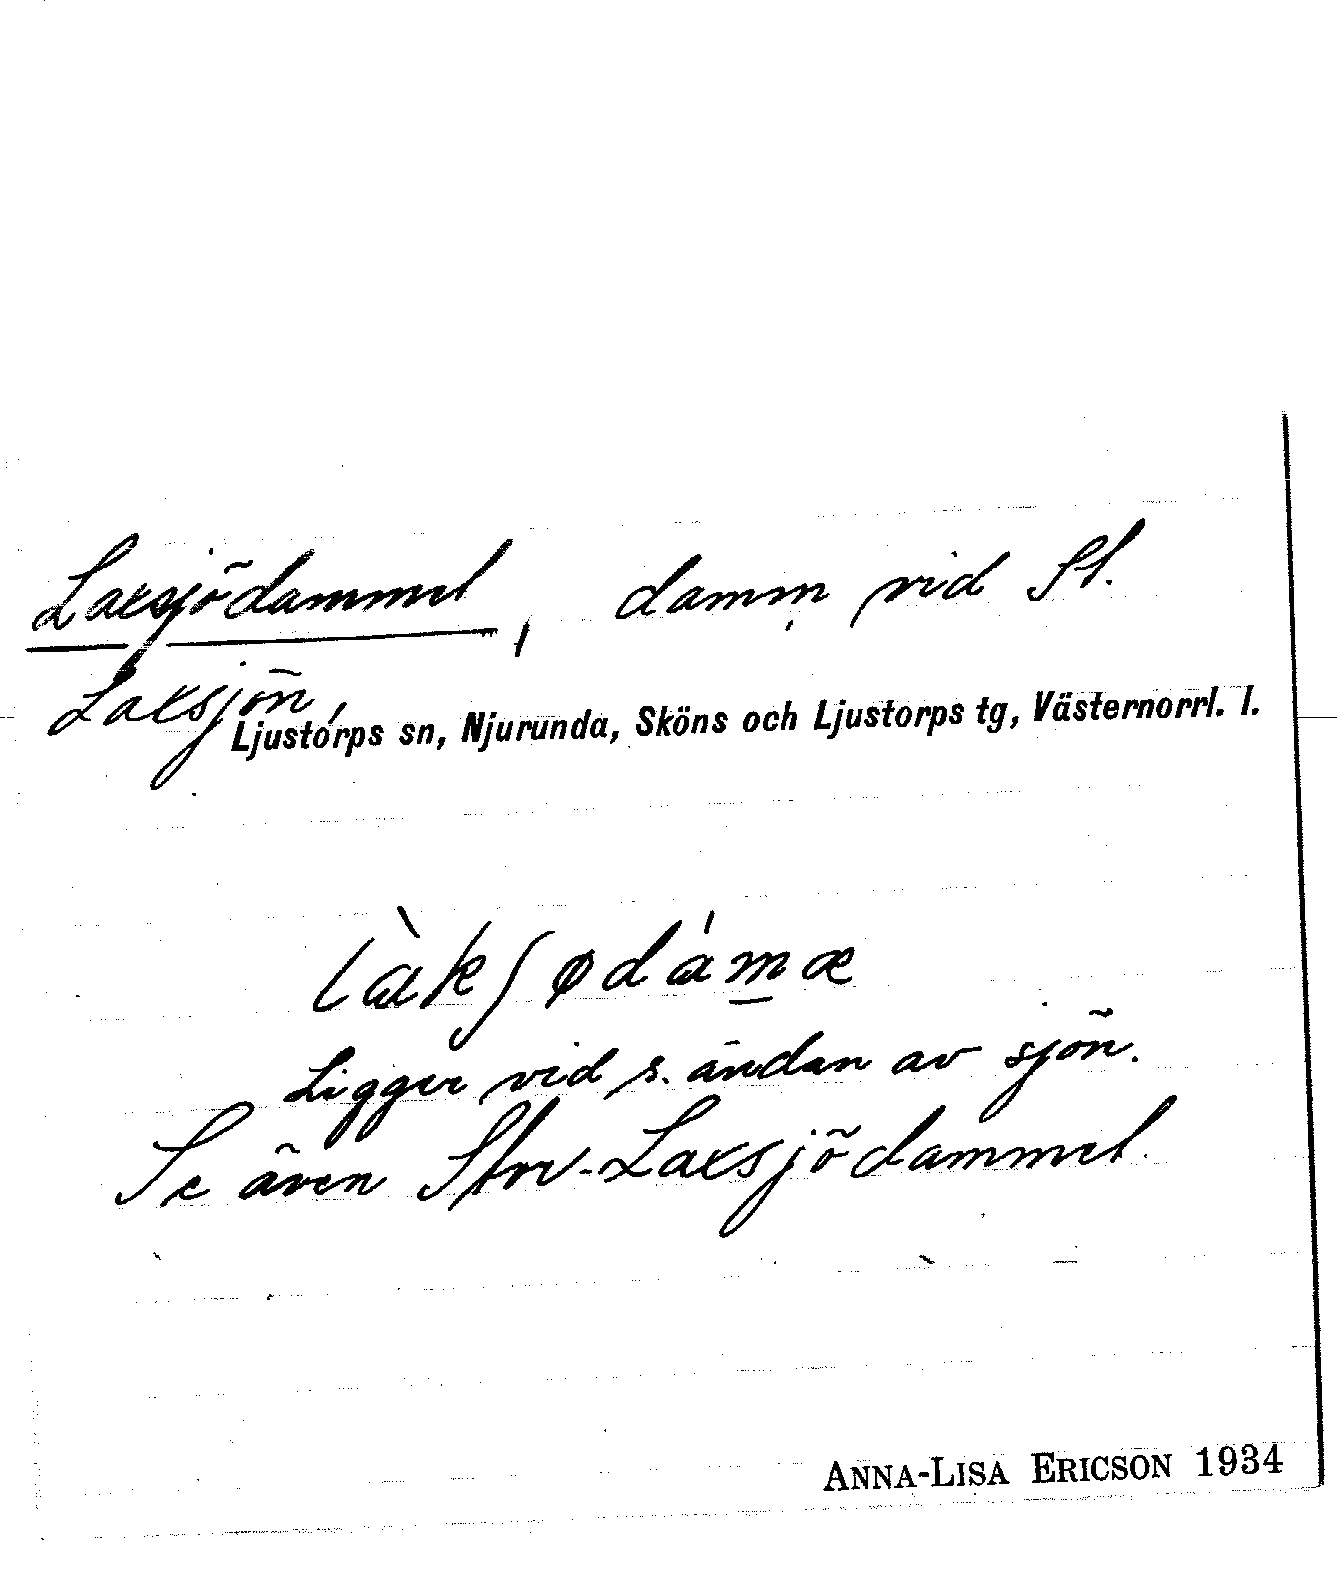 Laxsjödammet, damm vid St.
Laxsjön,
Ljustorps sn, Njurunda, Sköns och Ljustorps tg, Västernorrl. l.
làkʃødámæ
Ligger vid s. ändan av sjön.
Se även Stor-Laxsjödammet.
ANNA-LISA ERICSON 1934